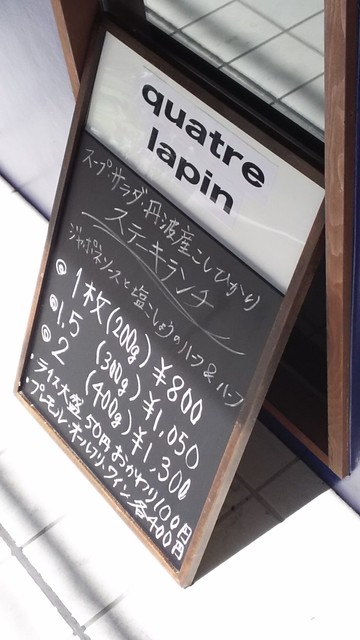 quatre
lapin
スープ・サラダ・丹波産こしひかり
ステーキランチ
ジャポネソースと塩こしょうのハーフ&ハーフ
◎1枚(200g)¥800
◎1.5(300g)¥1,050
◎2(400g)¥1,300
・ライス大盛50円おかわり100円
・プレモル・オールフリー・ワイン各400円